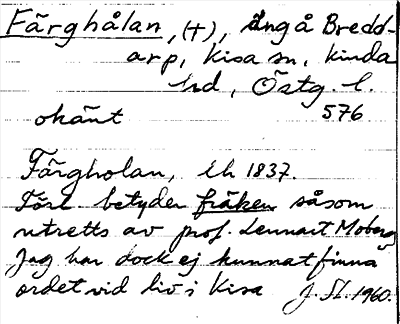 Färghålan, (+), ängå Bredd-
arp, Kisa sn, Kinda
hd, Östg. l.
okänt 576
Färgholan, Eh 1837.
Förl betyder fräken såsom
utretts av prof. Lennart Moberg
Jag har dock ej kunnat finna
ordet vid liv i Kisa J. Sl. 1960.